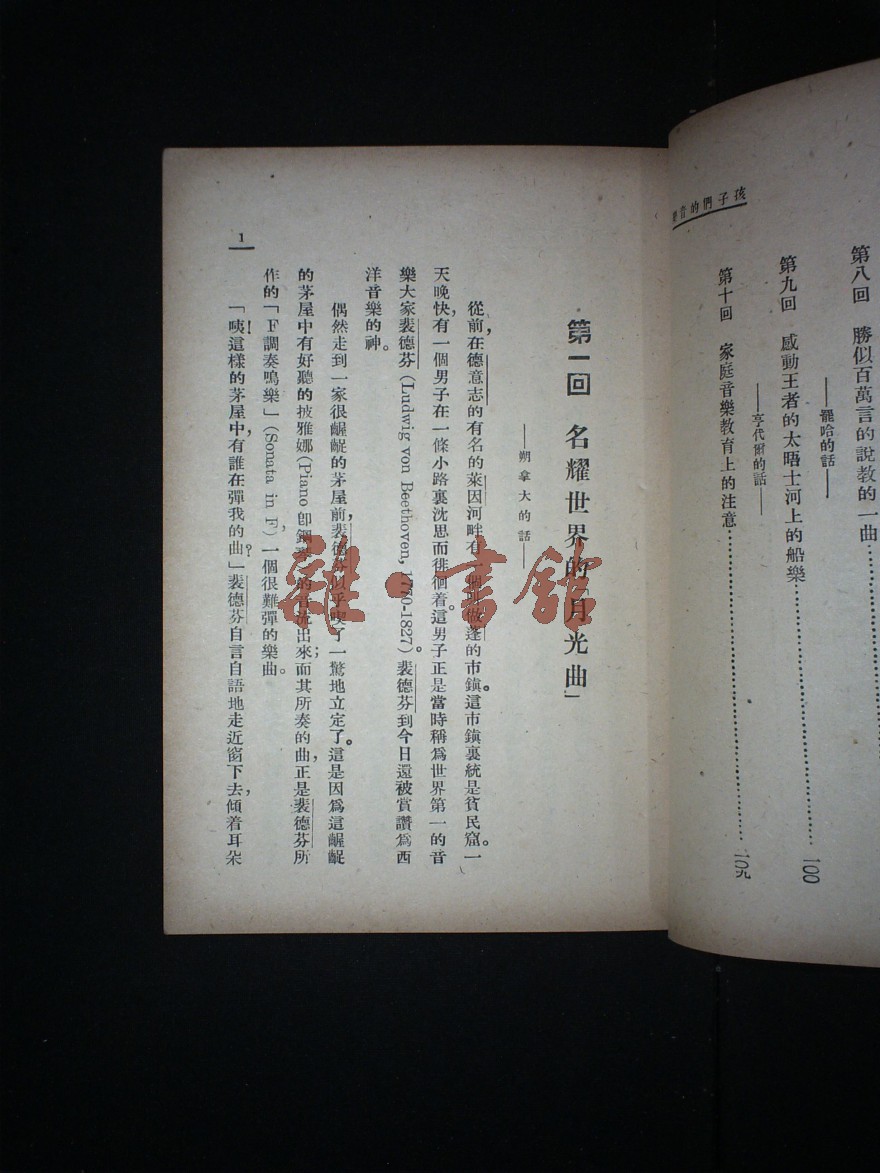 孩子們的音樂
第八回　勝似百萬言的說教的一曲…………
——罷哈的話
第九回　感動王者的太晤士河上的船樂…………100
——亨代爾的話——
第十回　家庭音樂教育上的注意…………一〇九
第一回　名耀世界的「月光曲」
——朔拿大的話——
從前，在德意志的有名的萊因河畔有一個叫做蓬的市鎮。這市鎮裏統是貧民窟。一
天晚快，有一個男子在一條小路裏沈思而徘徊着。這男子正是當時稱爲世界第一的音
樂大家裴德芬 (Ludwig von Beethoven, 1770-1827)。裴德芬到今日還被賞讚爲西
洋音樂的神。
偶然走到一家很齷齪的茅屋前，裴德芬似乎喫了一驚地立定了。這是因爲這齷齪
的茅屋中有好聽的披雅娜(Piano 卽鋼琴)的音流出來；而其所奏的曲，正是裴德芬所
作的「F調奏鳴樂」(Sonata in F)，一個很難彈的樂曲。
「咦！這樣的茅屋中，有誰在彈我的曲？」裴德芬自言自語地走近窗下去，傾着耳朵
1
雜·書館